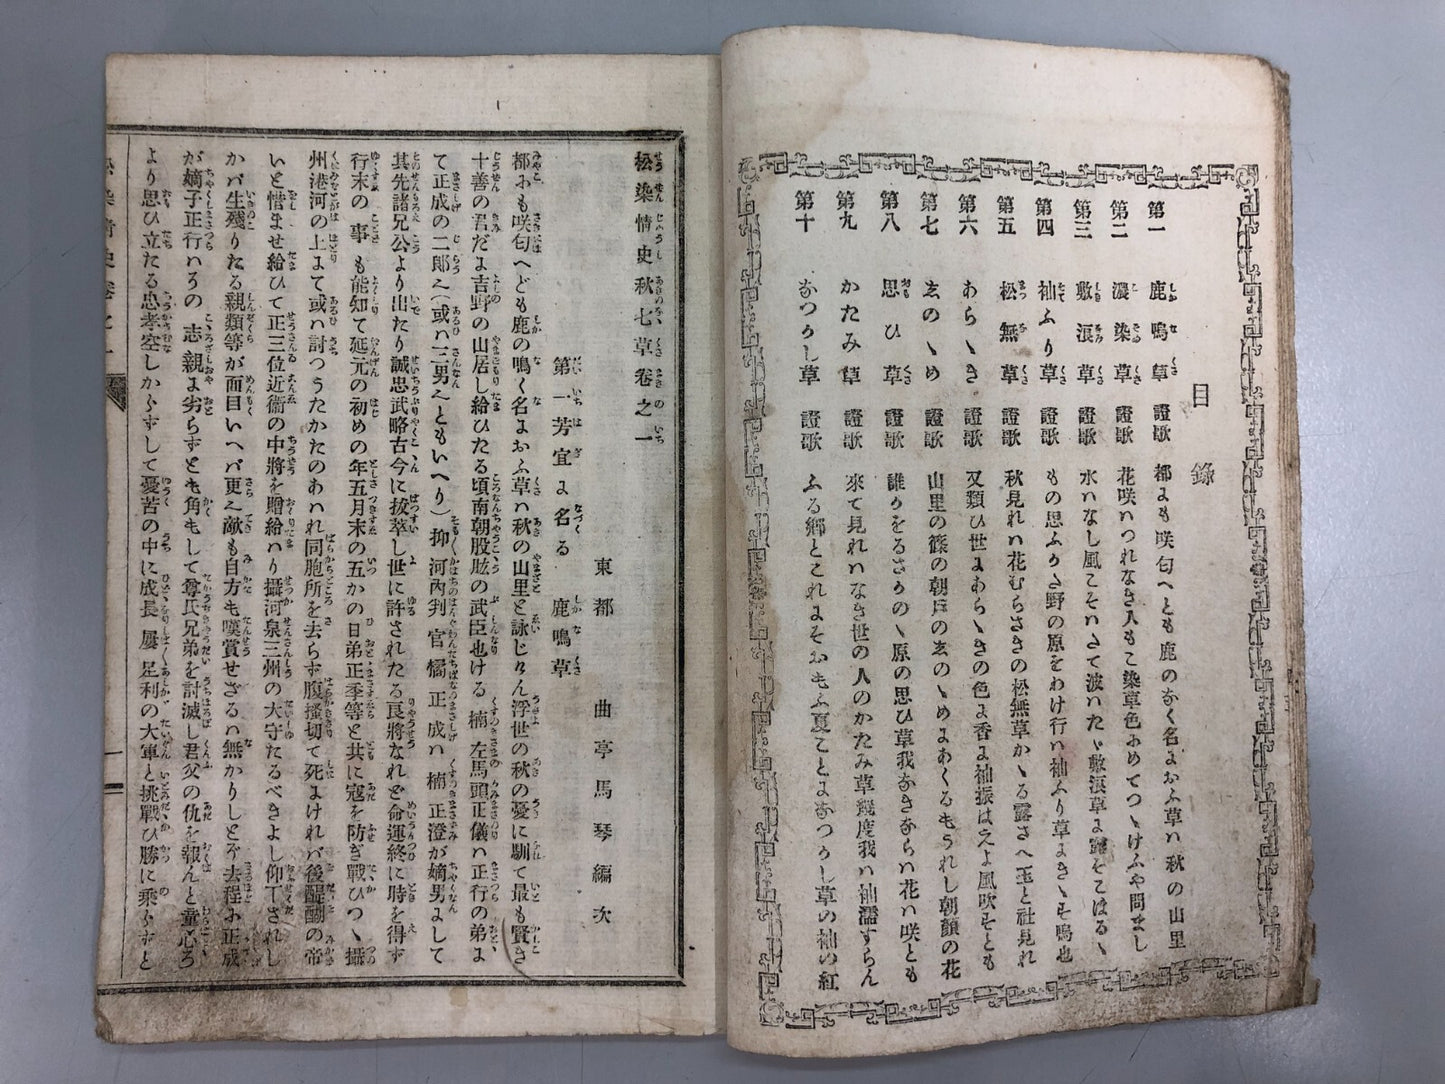 目錄
第一 鹿鳴草 證歌 都にも咲匂へとも鹿のなく名におふ草ハ秋の山里
第二 濃染草 證歌 花咲ハつれなき人もこ染草色そめてつゝけふや問まし
第三 敷浪草 證歌 水ハなし風こそハさて波ハたゝ敷浪草よ露をこはるゝ
第四 袖ふり草 證歌 もの思ふかた野の原をわけ行ハ袖ふり草よきゝす鳴也
第五 松無草 證歌 秋見れハ花むらさきの松無草かゝる露さへ玉と社見れ
第六 あらゝき 證歌 又類ひ世にあらゝきの色よ香よ袖振はえよ風吹すとも
第七 志のゝめ 證歌 山里の篠の朝戸の志のゝめにあくるもうれし朝顔の花
第八 思ひ草 證歌 誰かをるさかのゝ原の思ひ草我なきならハ花ハ咲とも
第九 かたみ草 證歌 來て見れハなき世の人のかたみ草幾度我ハ袖濡すらん
第十 なつかし草 證歌 ふる郷とこれよそおもふ夏ことよなつかし草の袖ハ紅
松染情史秋七草卷之一
東都 曲亭馬琴編次
第一 芳宜よ名る 鹿鳴草
都にも咲匂へども鹿の鳴く名におふ草ハ秋の山里と詠じけん浮世の秋の憂に馴て最も賢き
十善の君だよ吉野の山居し給ひたる頃南朝股肱の武臣也ける楠左馬頭正儀ハ正行の弟よ
て正成の二郎也(或ハ三男也ともいへり)抑河內判官橘正成ハ楠正澄が嫡男よして
其先諸兄公より出たり誠忠武略古今に拔萃し世に許されたる良將なれど命運終に時を得ず
行末の事も能知て延元の初めの年五月末の五かの日弟正季等と共に寇を防ぎ戰ひつゝ攝
州湊河の上よて或ハ討つうたかたのあハれ同胞所を去らず腹搔切て死よけれバ後醍醐の帝
いと惜ませ給ひて正三位近衞の中將を贈給ハり攝河泉三州の大守たるべきよし仰下されし
かバ生殘りたる親類等が面目いへバ更也敵も自方も嘆賞せざるハ無かりしとぞ去程に正成
が嫡子正行ハその志親よ劣らずとも角もして尊氏兄弟を討滅し君父の仇を報んと童心ろ
より思ひ立たる忠孝空しからずして憂苦の中に成長屢足利の大軍と挑戰ひ勝に乘らずと